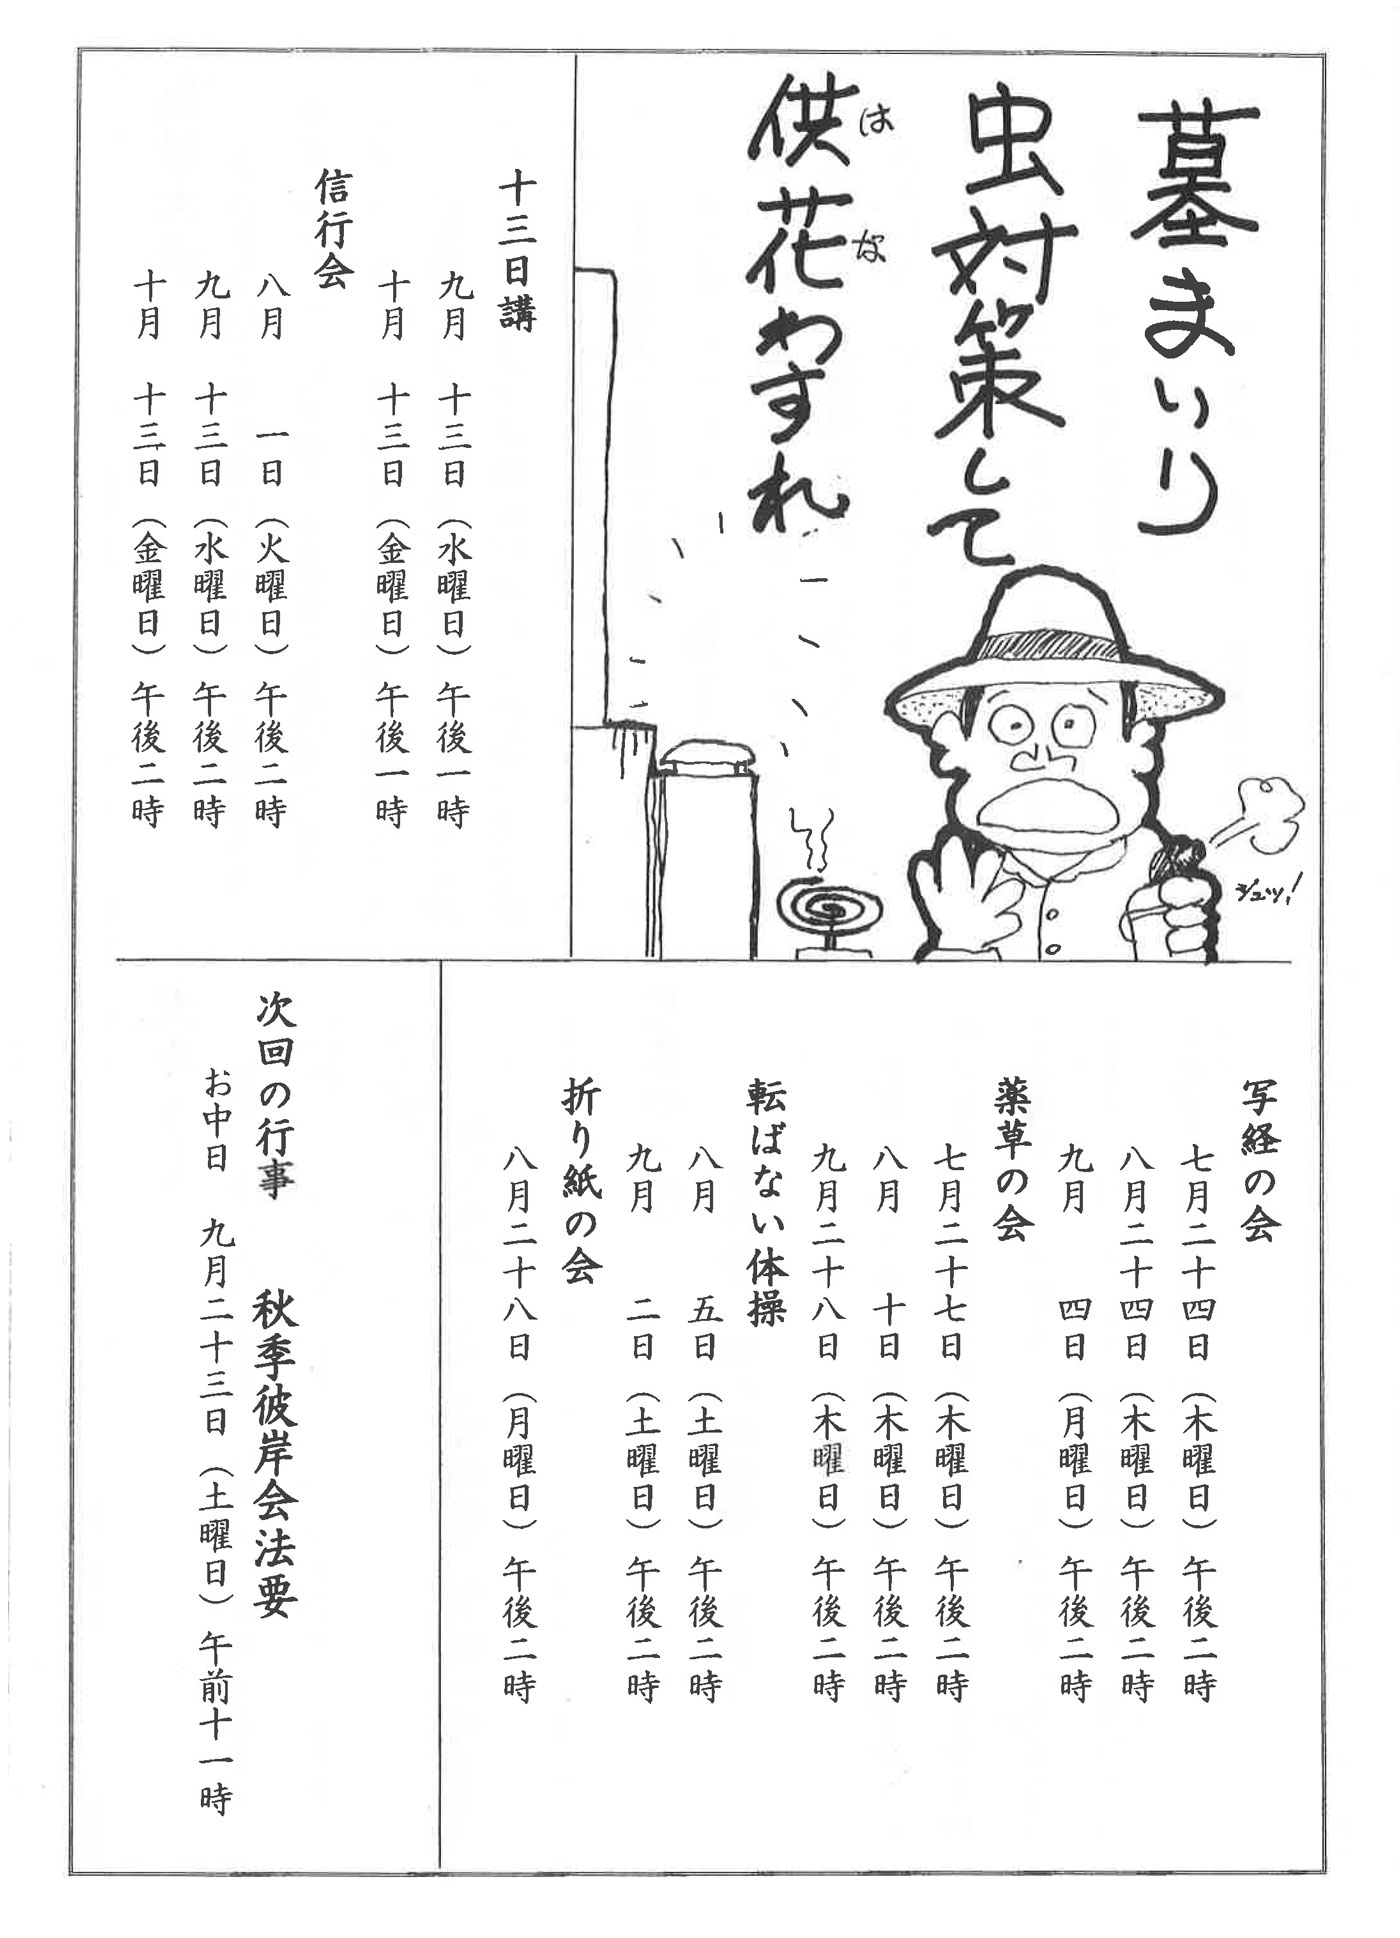 墓まいり
虫対策して
供花わすれ
はな
シュッ!
十三日講
九月 十三日(水曜日)午後一時
十月 十三日(金曜日)午後一時
信行会
八月 一日(火曜日)午後二時
九月 十三日(水曜日)午後二時
十月 十三日(金曜日)午後二時
写経の会
七月二十四日(木曜日)午後二時
八月二十四日(木曜日)午後二時
九月 四日(月曜日)午後二時
薬草の会
七月二十七日(木曜日)午後二時
八月 十日(木曜日)午後二時
九月二十八日(木曜日)午後二時
転ばない体操
八月 五日(土曜日)午後二時
九月 二日(土曜日)午後二時
折り紙の会
八月二十八日(月曜日)午後二時
次回の行事 秋季彼岸会法要
お中日 九月二十三日(土曜日)午前十一時